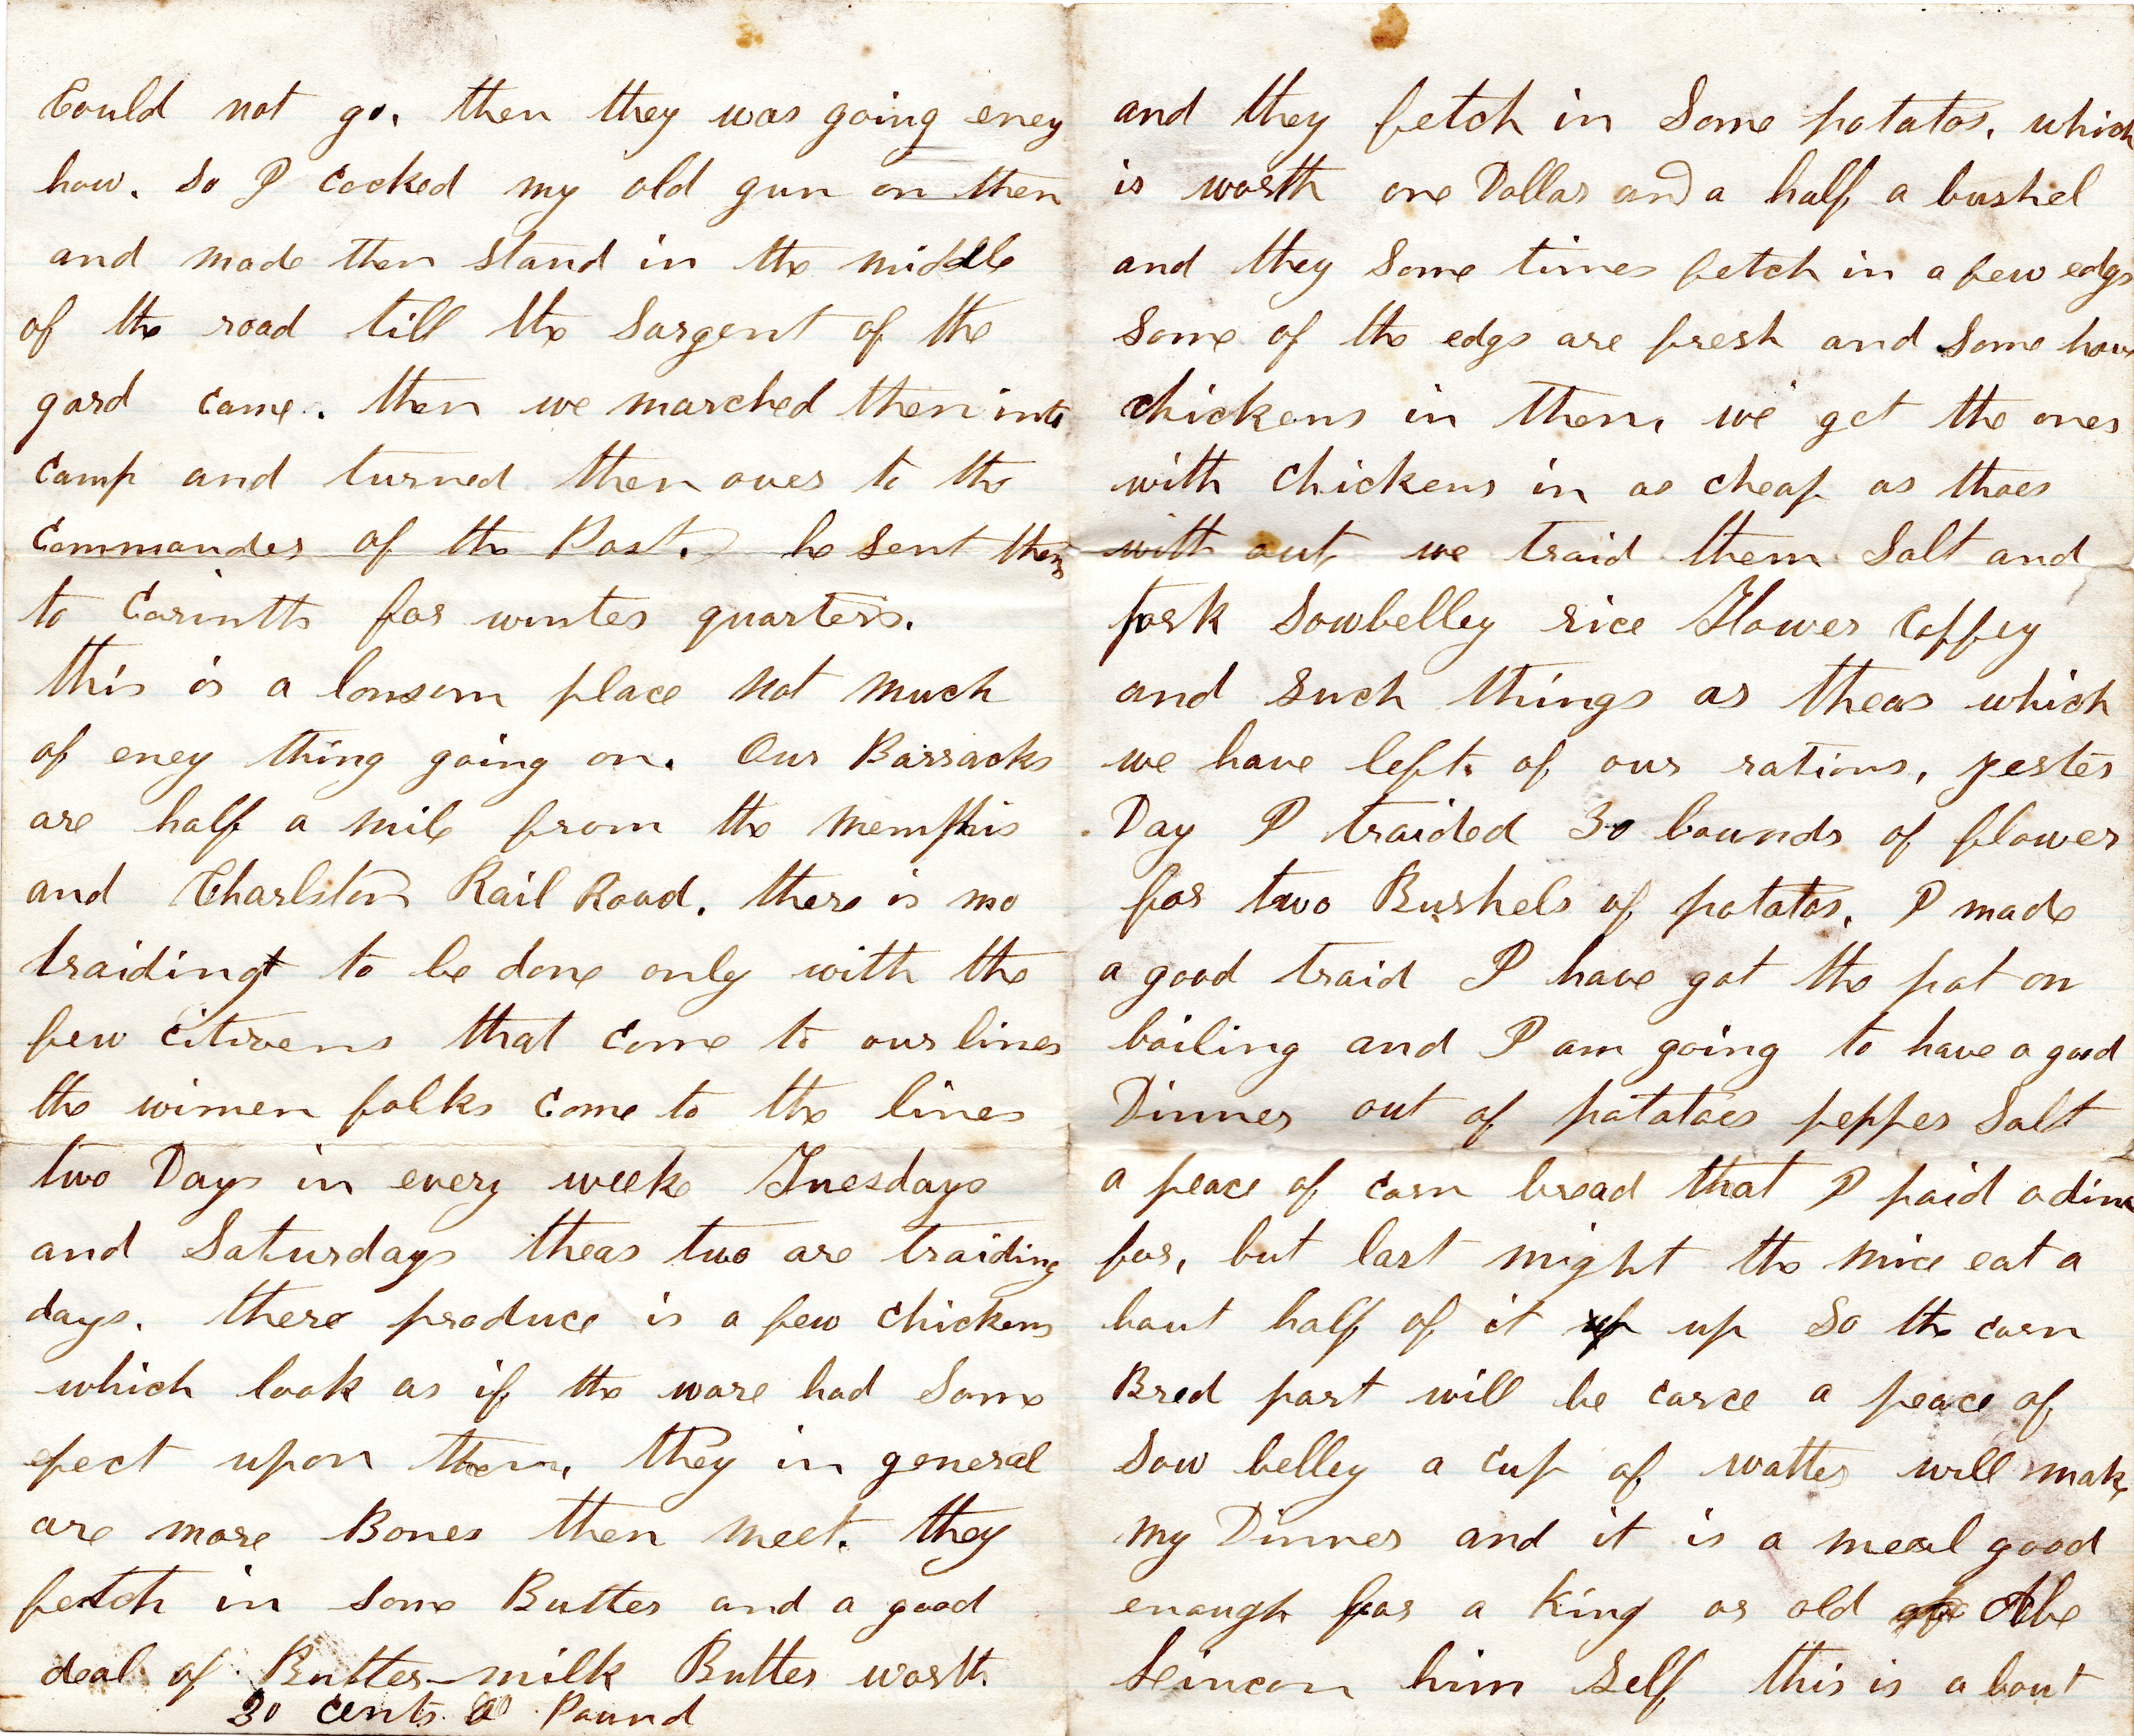 Could not go. then they was going eney
how. So I cocked my old gun on then
and made then stand in the middle
of the road till the Sargent of the
gard came. then we marched then into
camp and turned then over to the
commander of the Post. he sent them
to Corinth for winter quarters.
this is a lonsom place not much
of eney thing going on. Our Barracks
are half a mile from the memphis
and Charlston Rail Road. there is no
traiding to be done only with the
few citizens that come to our lines
the wimen folks come to the lines
two Days in every week Tuesdays
and Saturdays theas two are traiding
days. there produce is a few chickens
which look as if the ware had some
efect upon them, they in general
are more Bones then meet. they
fetch in some Butter and a good
deal of Butter-milk Butter worth
30 cents a Pound
and they fetch in Some potatos. which
is worth one Dollar and a half a bushel
and they Some times fetch in a few edgs
Some of the edgs are fresh and Some have
chickens in them, we get the ones
with chickens in as cheap as thoes
with out, we traid them Salt and
pork Sowbelley rice Flower Coffey
and such things as theas which
we have left of our rations, yester
Day I traided 30 bounds of flower
for two Bushels of potatos. I made
a good traid I have got the pot on
boiling and I am going to have a good
Dinner out of potatoes pepper Salt
a peace of corn bread that I paid a dime
for, but last night the mice eat a
bout half of it up up So the corn
Bred part will be carce a peace of
Sow belley a cup of watter will make
my Dinner and it is a meal good
enough for a King or old Abe
Leincon him Self this is a bout